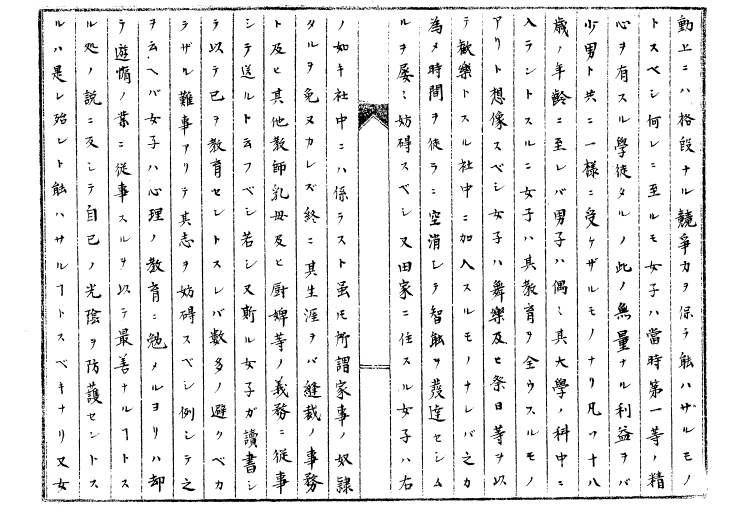 動上ニハ格段ナル競爭力ヲ保ラ能ハザルモノ
トスベシ何レニ至ルモ女子ハ當時第一等ノ精
心ヲ有スル學徒タルノ此ノ無量ナル利益ヲバ
少男ト共ニ一様ニ受ケザルモノナリ凡ソ十八
歳ノ年齡ニ至レバ男子ハ偶〻其大學ノ科中ニ
入ラントスルニ女子ハ其教育ヲ全ウスルモノ
アリト想像スベシ女子ハ舞樂及ヒ祭日等ヲ以
テ歡樂トスル社中ニ加入スルモノナレバ之カ
為メ時間ヲ徒ラニ空消シテ智能ヲ發達セシム
ルヲ屡〻妨碍スベシ又田家ニ住スル女子ハ右
ノ如キ社中ニハ係ラスト虽モ所謂家事ノ奴隷
タルヲ免ヌカレズ終ニ其生涯ヲバ縫裁ノ事務
ト及ヒ其他教師乳母及ヒ厨婢等ノ義務ニ従事
シテ送ルト云フベシ若シ又斯ル女子ガ讀書シ
ラ以テ已ヲ教育セントスレバ數多ノ避クベカ
ラザル難事アリテ其志ヲ妨碍スベシ例シテ之
ヲ云ヘバ女子ハ心理ノ教育ニ勉メルヨリハ却
テ遊惰ノ業ニ従事スルヲ以テ最善ナルヿトス
ル処ノ説ニ反シテ自己ノ光陰ヲ防護セントス
ルハ是レ殆レト能ハサルヿトスベキナリ又女